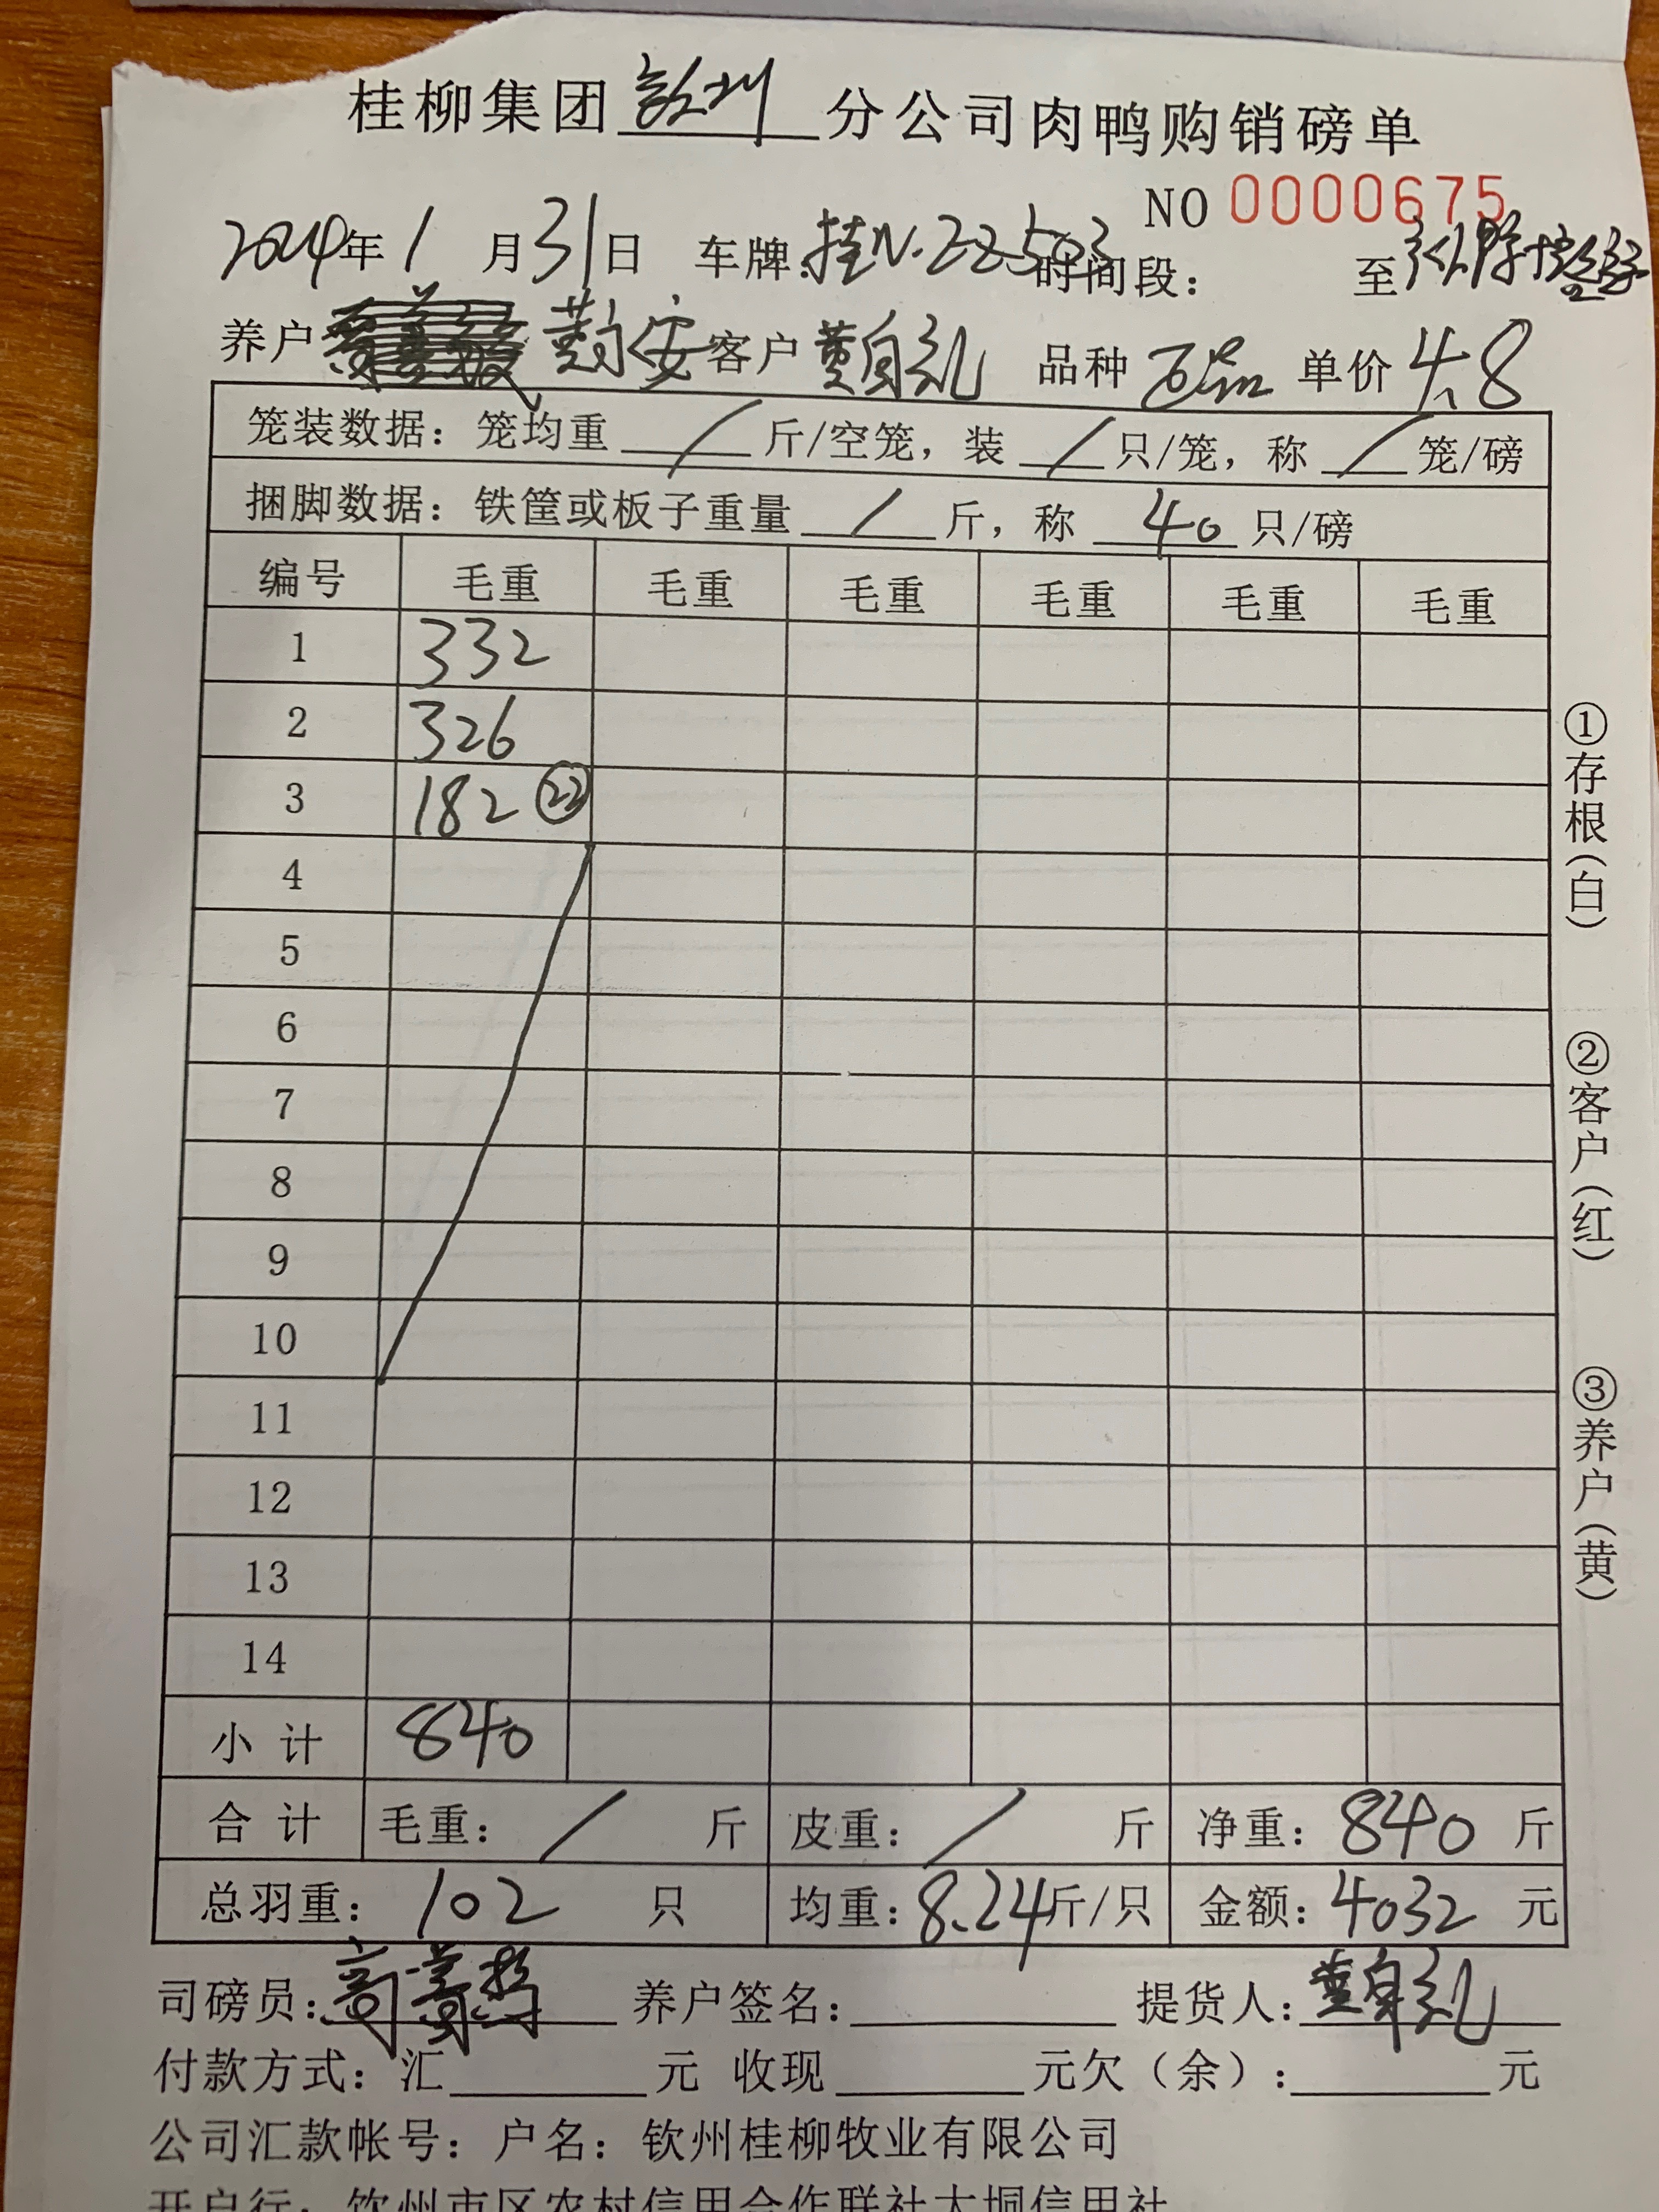 桂柳集团钦州分公司肉鸭购销磅单
NO 0000675
2024年1月31日 车牌:桂N.22503 时间段: 至
养户 安 客户 黄自礼 品种 单价 4.8
笼装数据: 笼均重 / 斤/空笼, 装 / 只/笼, 称 / 笼/磅
捆脚数据: 铁筐或板子重量 / 斤, 称 40 只/磅
编号 毛重 毛重 毛重 毛重 毛重 毛重
1 332
2 326
3 182 ㉒
4
5
6
7
8
9
10
11
12
13
14
小计 840
合计 毛重: / 斤 皮重: / 斤 净重: 840 斤
总羽重: 102 只 均重: 8.24斤/只 金额: 4032 元
司磅员: 养户签名: 提货人: 黄自礼
付款方式: 汇 元 收现 元欠(余): 元
公司汇款帐号: 户名: 钦州桂柳牧业有限公司
开户行: 钦州市区农村信用合作联社大垌信用社
①存根(白)
②客户(红)
③养户(黄)